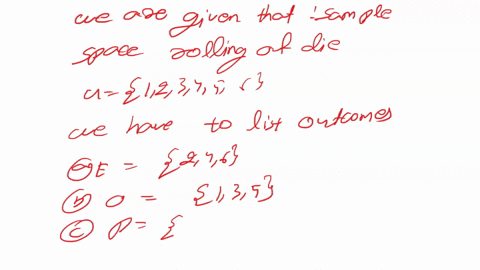 we are given that sample
space rolling of die
u = {1,2,3,4,5, 6}
we have to list outcomes
ⓐ E = {2,4,6}
ⓑ O = {1,3,5}
ⓒ P = {